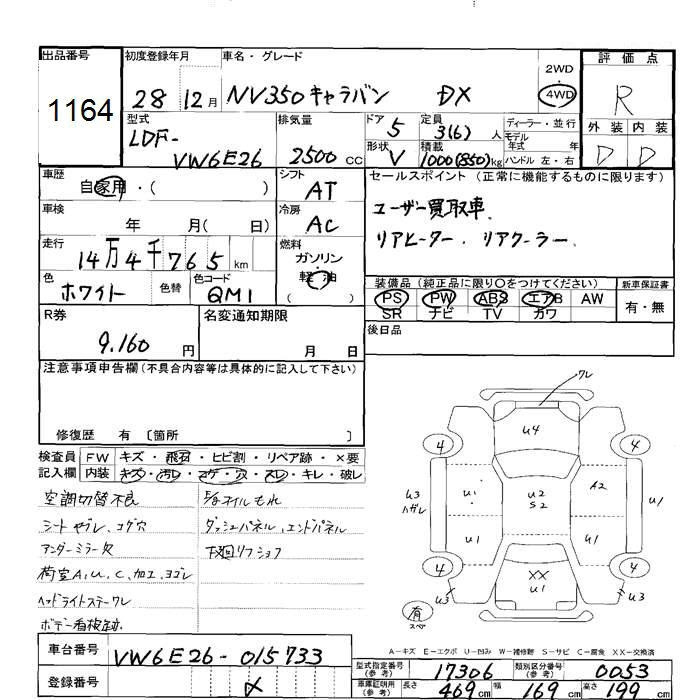 出品番号 初度登録年月 車名・グレード 2WD 評価点
1164 28 12月 NV350 キャラバン DX 4WD R
型式 排気量 ドア 定員 ディーラー・並行 外装 内装
LDF- 5 3(6)人 モデル年式 年 D D
VW6E26 2500cc 形状 V 積載 1000(850)kg ハンドル 左・右
車歴 シフト セールスポイント(正常に機能するものに限ります)
自家用・( ) AT ユーザー買取車.
車検 冷房
年 月( 日) AC リアヒーター. リアクーラー.
走行 燃料
14万4千765km ガソリン
色 色替 色コード 軽油 装備品(純正品に限り○をつけてください) 新車保証書
ホワイト QM1 ( ) PS PW ABS エアB AW 有・無
SR ナビ TV カワ
R券 名変通知期限 後日品
9.160円 月 日
注意事項申告欄(不具合内容等は具体的に記入して下さい)
修復歴 有 〔箇所 〕
検査員 FW キズ・飛石・ヒビ割・リペア跡・×要
記入欄 内装 キズ・汚レ・コゲ・穴・スレ・キレ・破レ
空調切替不良 オイルもれ
シートヤブレ、コゲ穴 ダッシュパネル、エンドパネル
アンダーミラー欠 下廻リフショク
荷室A,U,C,加工,ヨゴレ
ヘッドライトステーワレ
ボデー看板跡
ワレ
U4
4 4
U3 ハガレ U1 U2 S2 A2 U1
U1 U1
4 XX U1 4
U3 U3
有 スペア
A-キズ E-エクボ U-凹み W-補修跡 S-サビ C-腐食 XX-交換済
車台番号 VW6E26-015733
型式指定番号(参考) 17306 類別区分番号(参考) 0053
登録番号 車庫証明用(参考) 長さ 469cm 幅 169cm 高さ 199cm